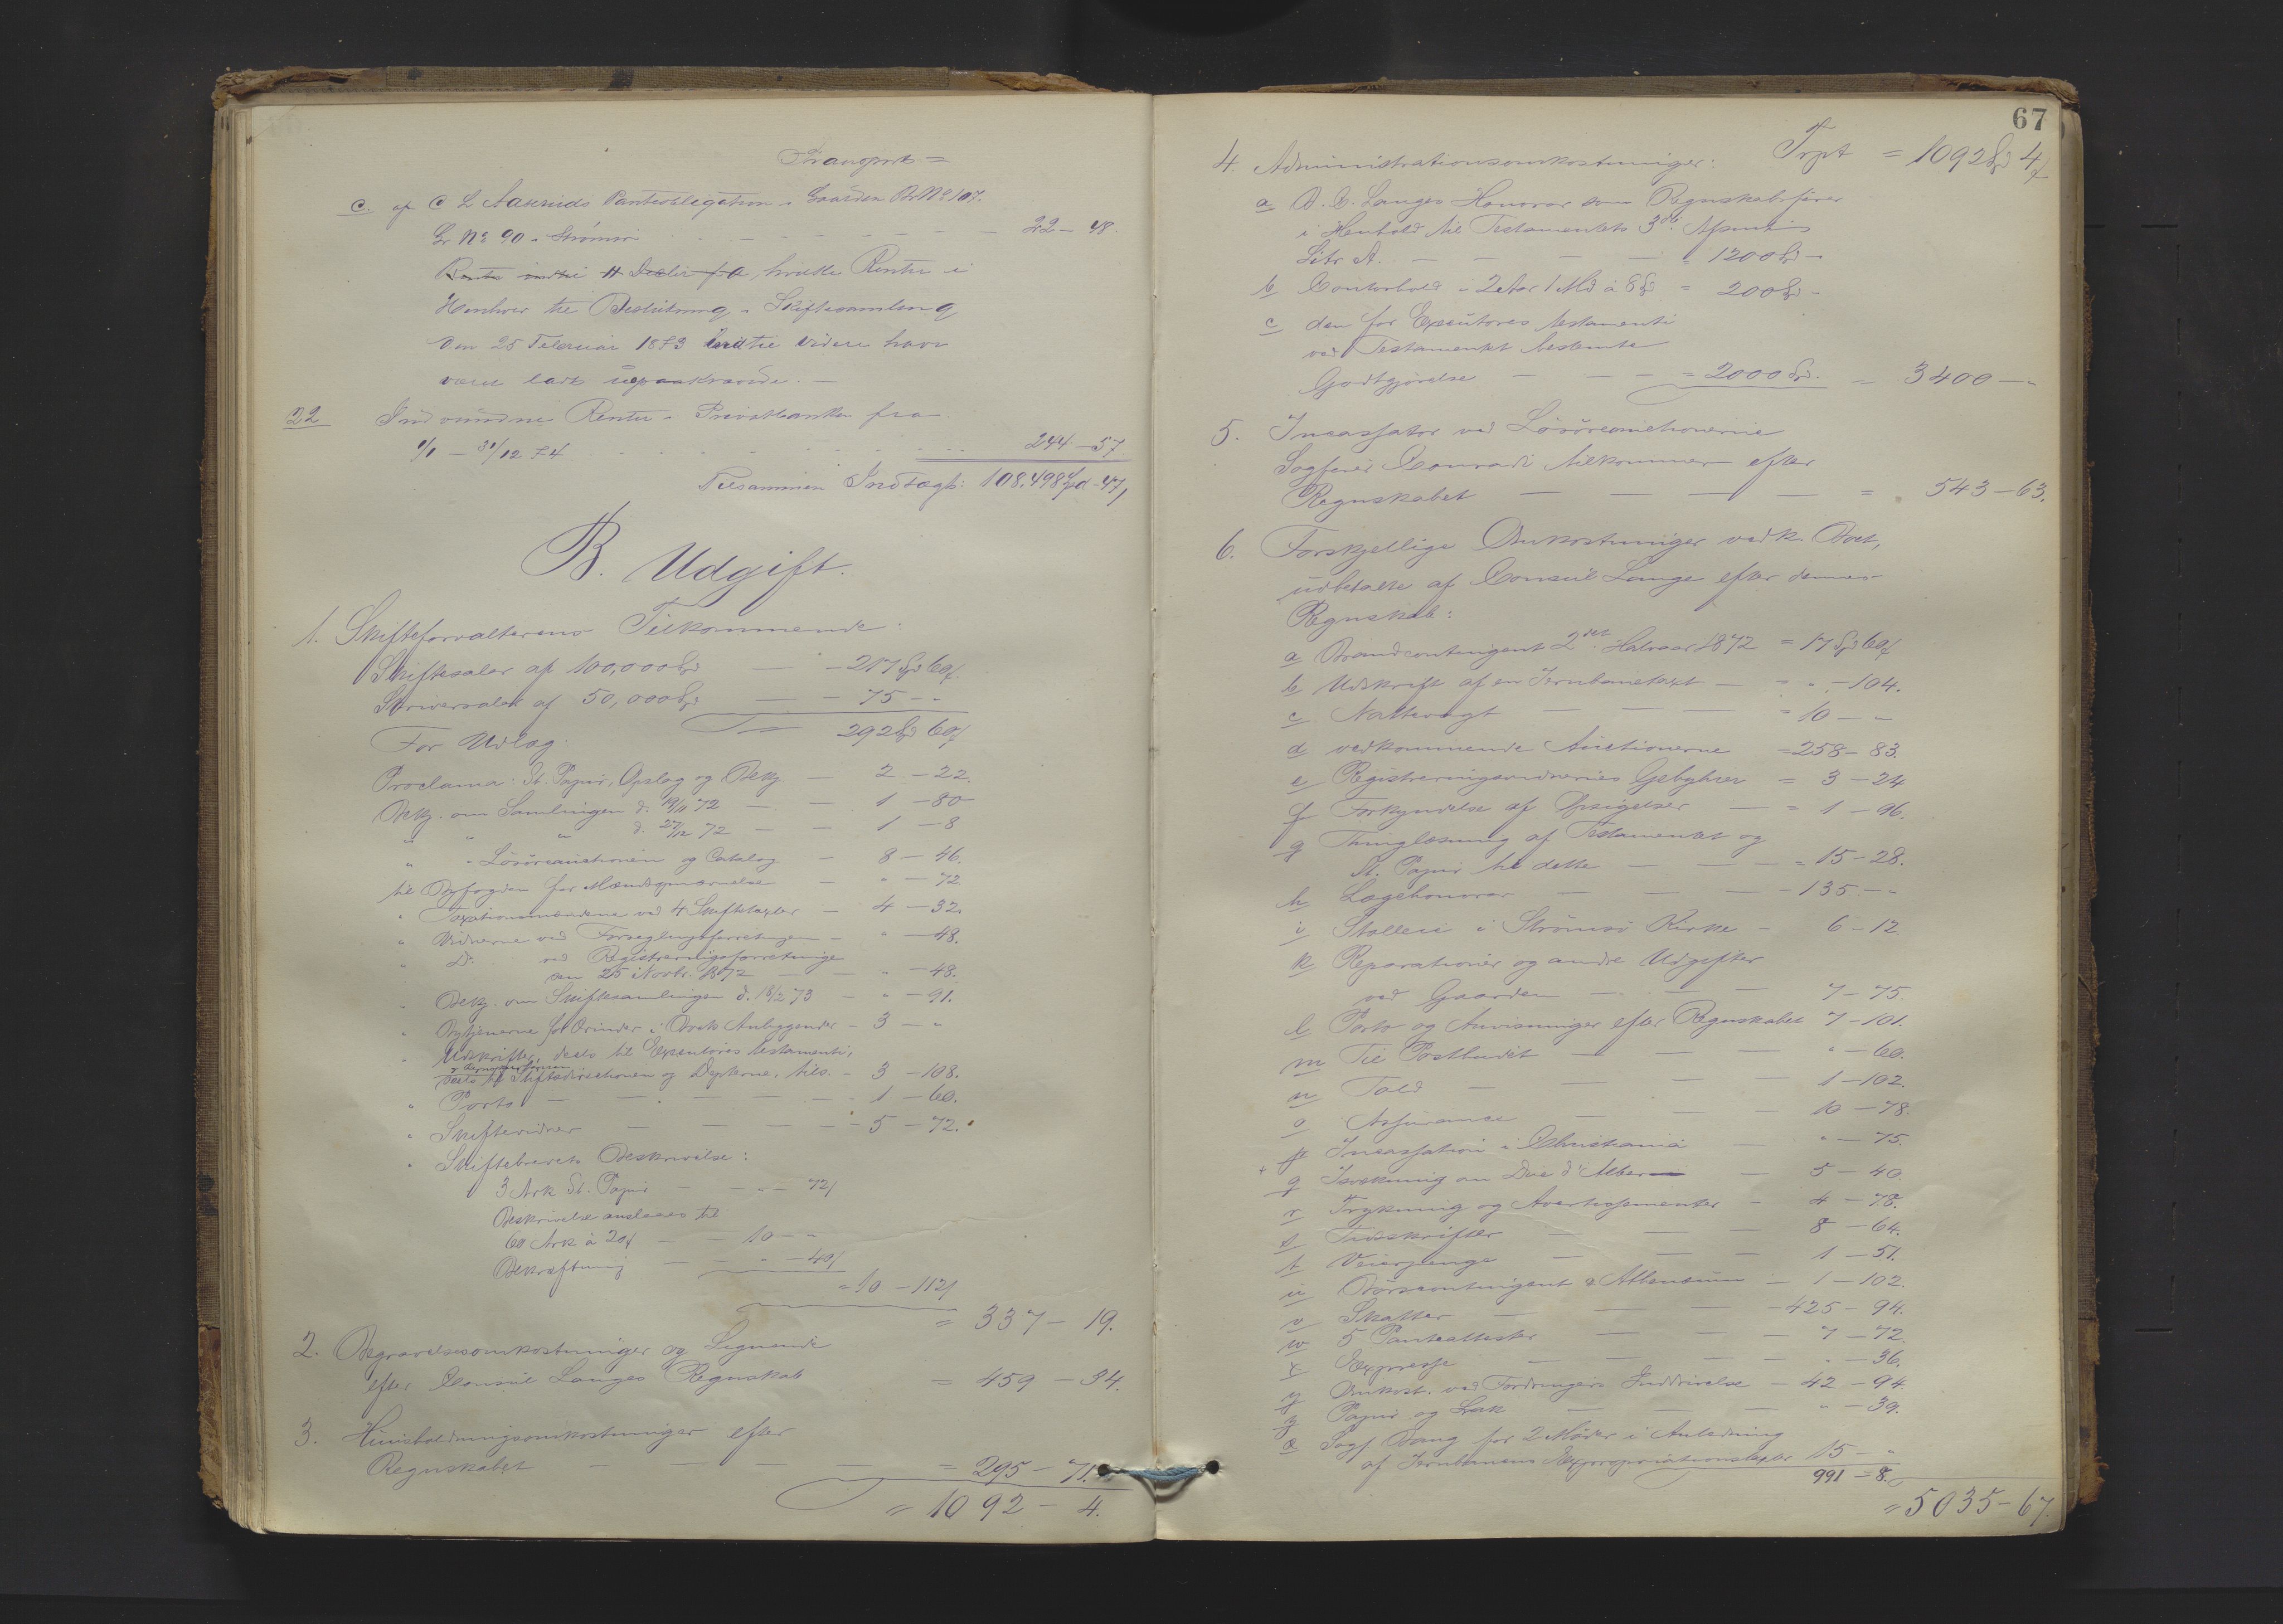 Transport =
c. af C L Aaeruds Panteobligation i Gaarden Br. No 107.
Gr No 90 i Strømsø - - - - - - 22 - 48.
hvilke Renter i
Henhold til Beslutning i Skiftesamling
den 25 Februar 1873 indtil videre have
været ladt upaakrævede. -
22 Indvundne Renter i Privatbanken fra
1/1 - 31/12 74 - - - - - - 244 - 57
Tilsammen Indtægt: 108.498 Spd - 47 s
B. Udgift.
1. Skifteforvalterens Tilkommende:
Skiftesalær af 100,000 Spd - - 217 Spd 60 s
Skriversalær af 50,000 Spd - - 75 - "
= 292 Spd 60 s
For Udlæg:
Proclama: St. Papir, Opslag og Bekj - 2 - 22.
Bekj. om Samlingen d. 19/11 72 - - 1 - 80
" " " d. 27/12 72 - - 1 - 8
" " Løsøreauctionen og Catalog - 8 - 46.
til Byfogden for Mændsopnævnelse - " - 72
" Taxationsmændene ved 4 Skiftetaxter - 4 - 32.
" Vidnerne ved Forseglingsforretningen - " - 48.
" Do. ved Registreringsforretninge
den 25 Novbr. 1872 - - " - 48.
" Bekj. om Skiftesamlingen d. 18/2 73 - " - 91.
" Bytjenerne for Ærinder i Boets Anliggender - 3 - "
" Udskrifter, dels til Executores testamenti,
dels til Stiftsdirectionen og Depterne, tils. - 3 - 108.
" Porto - - - - - 1 - 60.
" Skiftevidner - - - - - 5 - 72.
" Skiftebrevets Beskrivelse:
3 Ark St. Papir - - " - 72 s
Beskrivelse ansleaes til
60 Ark à 20 s - - 10 - "
Bekræftning - - " - 40 s
= 10 - 112 s
= 337 - 19.
2. Begravelsesomkostninger og Lignende
efter Consul Langes Regnskab = 459 - 34.
3. Huusholdningsomkostninger efter
Regnskabet - - - - = 295 - 71.
= 1092 - 4.
67
Trpt = 1092 Spd 4 s
4. Administrationsomkostninger:
a Langes Honorar som Regnskabsfører
i Henhold til Testamentets 3die Afsnit
Litr A. - - - - = 1200 Spd -
b Contorhold i 2 Aar 1 Md à 8 Spd = 200 Spd -
c den for Executores testamenti
ved Testamentet bestemte
Godtgjørelse - - - = 2000 Spd. = 3400 - "
5. Incassator ved Løsøreauctionerne
Sagfører Conradi tilkommer efter
Regnskabet - - - - = 543 - 63.
6. Forskjellige Omkostninger vedk. Boet,
udbetalte af Consul Lange efter dennes
Regnskab:
a Brandcontingent 2det Halvaar 1872 = 17 Spd 60 s
b Udskrift af en Jernbanetaxt - = " - 104.
c Nattevagt - - - = 10 - "
d vedkommende Auctionerne = 258 - 83.
e Registreringsvidnernes Gebyhrer = 3 - 24
f Forkyndelse af Opsigelser - = 1 - 96.
g Thinglæsning af Testamentet og
St. Papir til dette - - - = 15 - 28.
h Lægehonorar - - - - 135 - "
i Stolleie i Strømsø Kirke - 6 - 12.
k Reparationer og andre Udgifter
ved Gaarden - - - 7 - 75.
l Porto og Anvisninger efter Regnskabet 7 - 101.
m Til Postbudet - - - " - 60.
n Told - - - - 1 - 102.
o Assurance - - - 10 - 78.
p Incassation i Christiania - " - 75.
q - 5 - 40.
r Trykning og Avertissementer - 4 - 78.
s Tidsskrifter - - - 8 - 64.
t Veierpenge - - - 1 - 51.
u Børscontingent & Athenæum - 1 - 102.
v Skatter - - - - 425 - 94.
w 5 Panteattester - - - 7 - 72.
x Expresse - - - - " - 36.
y Omkost. ved Fordringers Inddrivelse - 42 - 94.
z Papir og Lak - - - " - 39.
æ Sagf Vang for 2 Møder i Anledning
af Jernbanens Expropriationstaxter 15 - "
991 - 8.
= 5035 - 67.